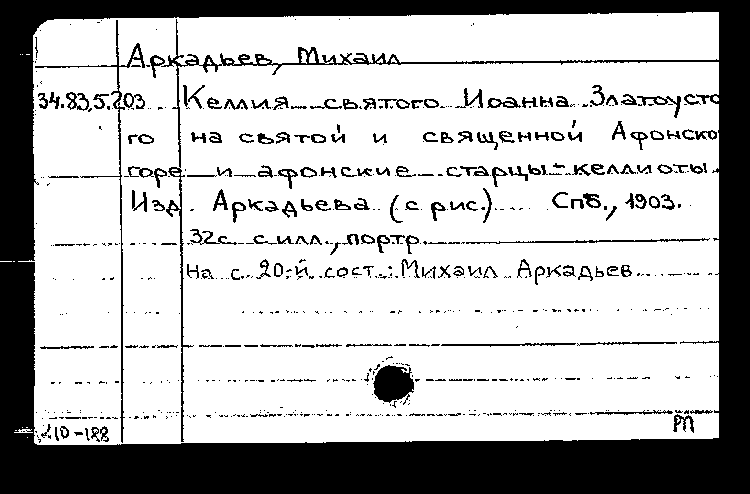 Аркадьев, Михаил
34.83.5.203 Келлия святого Иоанна Златоусто
го на святой и священной Афонско
горе и афонские старцы-келлиоты.
Изд. Аркадьева (с рис.) Спб., 1903.
32с. с илл., портр.
На с. 20-й сост.: Михаил Аркадьев
210-188 РП